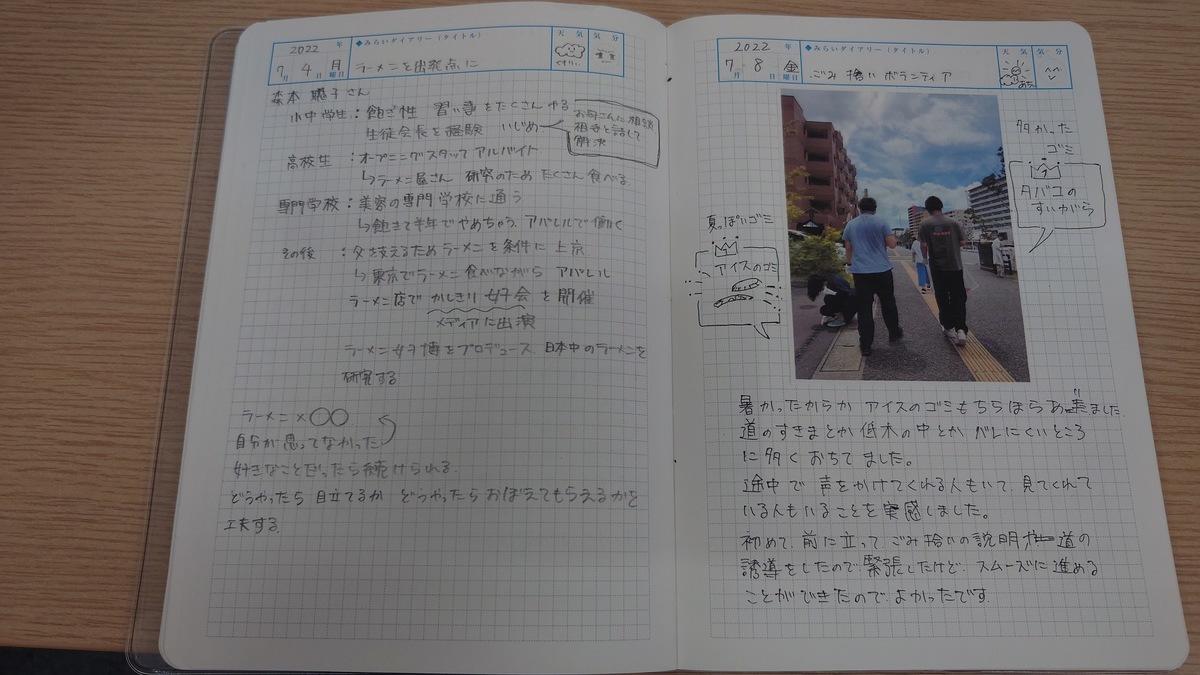 2022 年
7月 4日 月曜日
◆みらいダイアリー(タイトル)
ラーメンを出発点に
天気 気分
くもり
森本 聡子さん
小中学生：飽き性 習い事をたくさんやる
生徒会長を経験 いじめ
お母さんに相談
相手と話して
解決
高校生 ：オープニングスタッフ アルバイト
↳ラーメン屋さん 研究のため たくさん食べる
専門学校：美容の専門学校に通う
↳飽きて半年でやめちゃう. アパレルで働く
その後 ：夕を支えるためラーメンを条件に上京
↳東京でラーメン食べながら アパレル
ラーメン店で かしきり 女子会 を開催
メディアに出演
ラーメン女子博をプロデュース. 日本中のラーメンを
研究する
ラーメン×〇〇
自分が思ってなかった
好きなことだったら続けられる.
どうやったら 目立てるか どうやったら おぼえてもらえるかを
工夫する.
2022 年
7月 8日 金曜日
◆みらいダイアリー(タイトル)
ごみ拾い ボランティア
天気 気分
あち
多かった
ゴミ
1
タバコの
すいがら
夏っぽいゴミ
1
アイスのゴミ
暑かったからか アイスのゴミもちらほらありました.
道のすきまとか 低木の中とか バレにくいところ
に多く おちてました。
途中で 声をかけてくれる人もいて、見てくれて
いる人もいることを実感しました。
初めて、前に立って、ごみ拾いの説明 道の
誘導をしたので、緊張したけど、スムーズに進める
ことができたので よかったです.